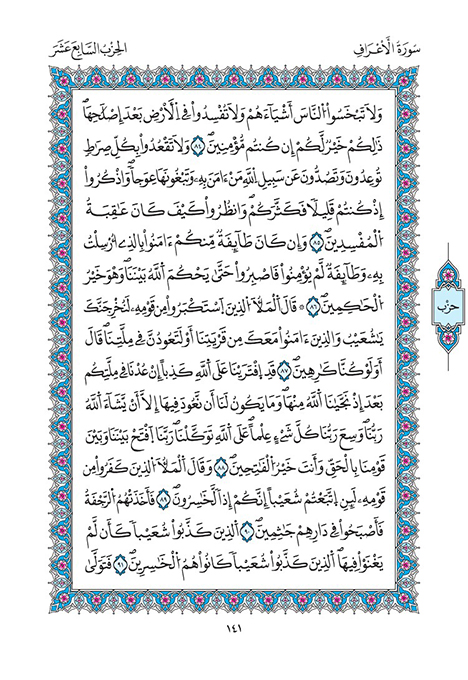 سُورَةُ الْأَعْرَافِ
الحِزْبُ السَّابِعَ عَشَرَ
وَلَا تَبْخَسُوا۟ النَّاسَ أَشْيَآءَهُمْ وَلَا تُفْسِدُوا۟ فِى الْأَرْضِ بَعْدَ إِصْلَٰحِهَا
ذَٰلِكُمْ خَيْرٌ لَّكُمْ إِن كُنتُم مُّؤْمِنِينَ ٨٤ وَلَا تَقْعُدُوا۟ بِكُلِّ صِرَٰطٍ
تُوعِدُونَ وَتَصُدُّونَ عَن سَبِيلِ اللَّهِ مَنْ ءَامَنَ بِهِۦ وَتَبْغُونَهَا عِوَجاً وَاذْكُرُوٓا۟
إِذْ كُنتُمْ قَلِيلًا فَكَثَّرَكُمْ وَانظُرُوا۟ كَيْفَ كَانَ عَٰقِبَةُ
الْمُفْسِدِينَ ٨٥ وَإِن كَانَ طَآئِفَةٌ مِّنكُمْ ءَامَنُوا۟ بِالَّذِىٓ أُرْسِلْتُ
بِهِۦ وَطَآئِفَةٌ لَّمْ يُؤْمِنُوا۟ فَاصْبِرُوا۟ حَتَّىٰ يَحْكُمَ اللَّهُ بَيْنَنَا وَهُوَ خَيْرُ
الْحَٰكِمِينَ ٨٦ ۞ قَالَ الْمَلَأُ الَّذِينَ اسْتَكْبَرُوا۟ مِن قَوْمِهِۦ لَنُخْرِجَنَّكَ
يَٰشُعَيْبُ وَالَّذِينَ ءَامَنُوا۟ مَعَكَ مِن قَرْيَتِنَآ أَوْ لَتَعُودُنَّ فِى مِلَّتِنَا قَالَ
أَوَلَوْ كُنَّا كَٰرِهِينَ ٨٧ قَدِ افْتَرَيْنَا عَلَى اللَّهِ كَذِباً إِنْ عُدْنَا فِى مِلَّتِكُم
بَعْدَ إِذْ نَجَّىٰنَا اللَّهُ مِنْهَا وَمَا يَكُونُ لَنَآ أَن نَّعُودَ فِيهَآ إِلَّآ أَنْ يَّشَآءَ اللَّهُ
رَبُّنَا وَسِعَ رَبُّنَا كُلَّ شَىْءٍ عِلْماً عَلَى اللَّهِ تَوَكَّلْنَا رَبَّنَا افْتَحْ بَيْنَنَا وَبَيْنَ
قَوْمِنَا بِالْحَقِّ وَأَنتَ خَيْرُ الْفَٰتِحِينَ ٨٨ وَقَالَ الْمَلَأُ الَّذِينَ كَفَرُوا۟ مِن
قَوْمِهِۦ لَئِنِ اتَّبَعْتُمْ شُعَيْباً إِنَّكُمْ إِذاً لَّخَٰسِرُونَ ٨٩ فَأَخَذَتْهُمُ الرَّجْفَةُ
فَأَصْبَحُوا۟ فِى دَارِهِمْ جَٰثِمِينَ ٩٠ الَّذِينَ كَذَّبُوا۟ شُعَيْباً كَأَن لَّمْ
يَغْنَوْا۟ فِيهَا الَّذِينَ كَذَّبُوا۟ شُعَيْباً كَانُوا۟ هُمُ الْخَٰسِرِينَ ٩١ فَتَوَلَّىٰ
حِزْب
١٤١